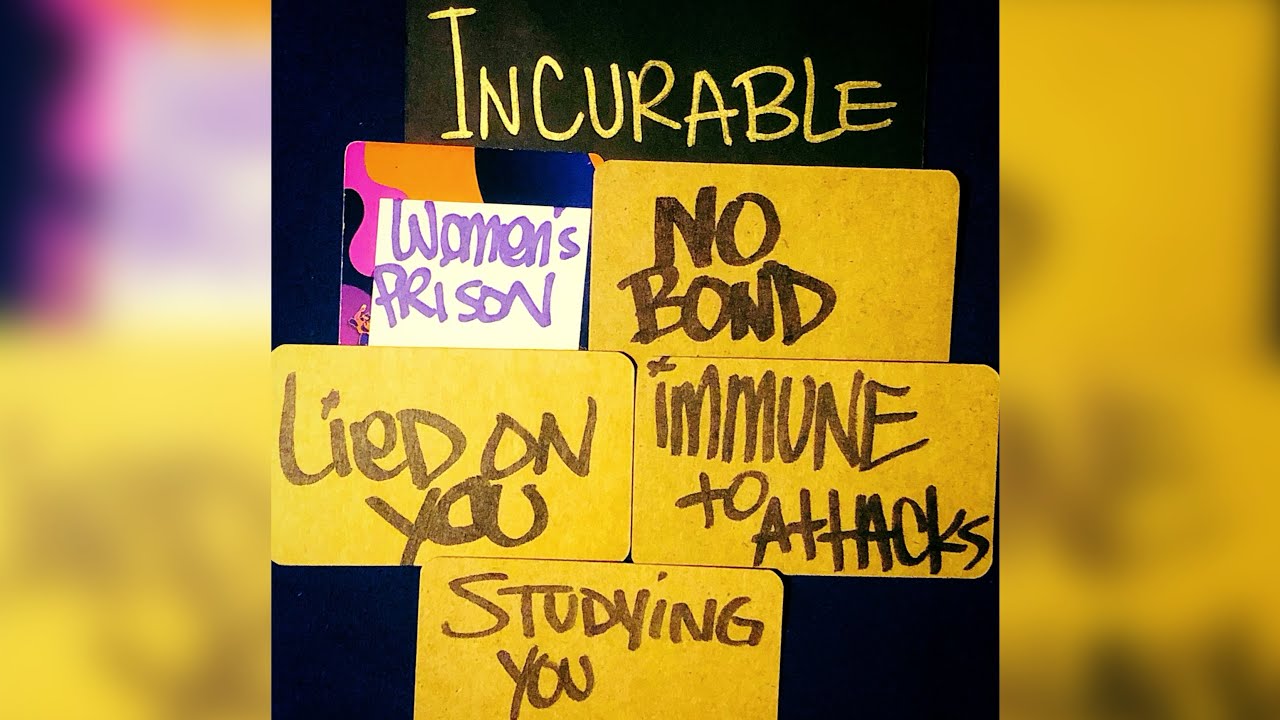 INCURABLE
Women's
PRISON
NO
BOND
Lied ON
YOU
iMMUNE
to AttACKS
STUDYiNG
YOU